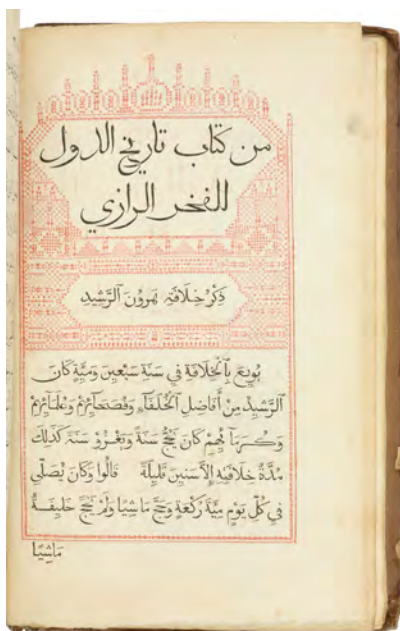 من كتاب تاريخ الدول
للفخر الرازي
ذِكْرُ خِلَافَةِ هَرُونَ ٱلرَّشِيدِ
بُويِعَ بِٱلْخِلَافَةِ فِي سَنَةِ سَبْعِينَ وَمِيَّةٍ كَانَ
ٱلرَّشِيدُ مِنْ أَفَاضِلِ ٱلْخُلَفَآءِ وَفُصَحَآئِهِمْ وَعُلَمَآئِهِمْ
وَكُرَمَآئِهِمْ كَانَ يَحُجُّ سَنَةً وَيَغْزُو سَنَةً كَذٰلِكَ
مُدَّةَ خِلَافَتِهِ إِلَّا سِنِينَ قَلِيلَةً قَالُوا وَكَانَ يُصَلِّي
فِي كُلِّ يَوْمٍ مِيَّةَ رَكْعَةٍ وَحَجَّ مَاشِيًا وَلَمْ يَحُجَّ خَلِيفَةٌ
مَاشِيًا